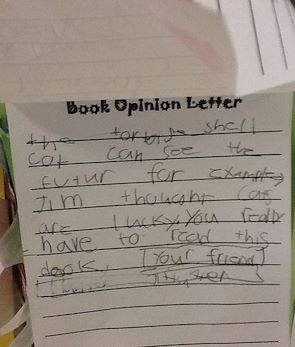 Book Opinion Letter
the tortoise shell
cat can see the
futur for example,
Jim thought cats
are lucky. You really
have to read this
dook. Your friend